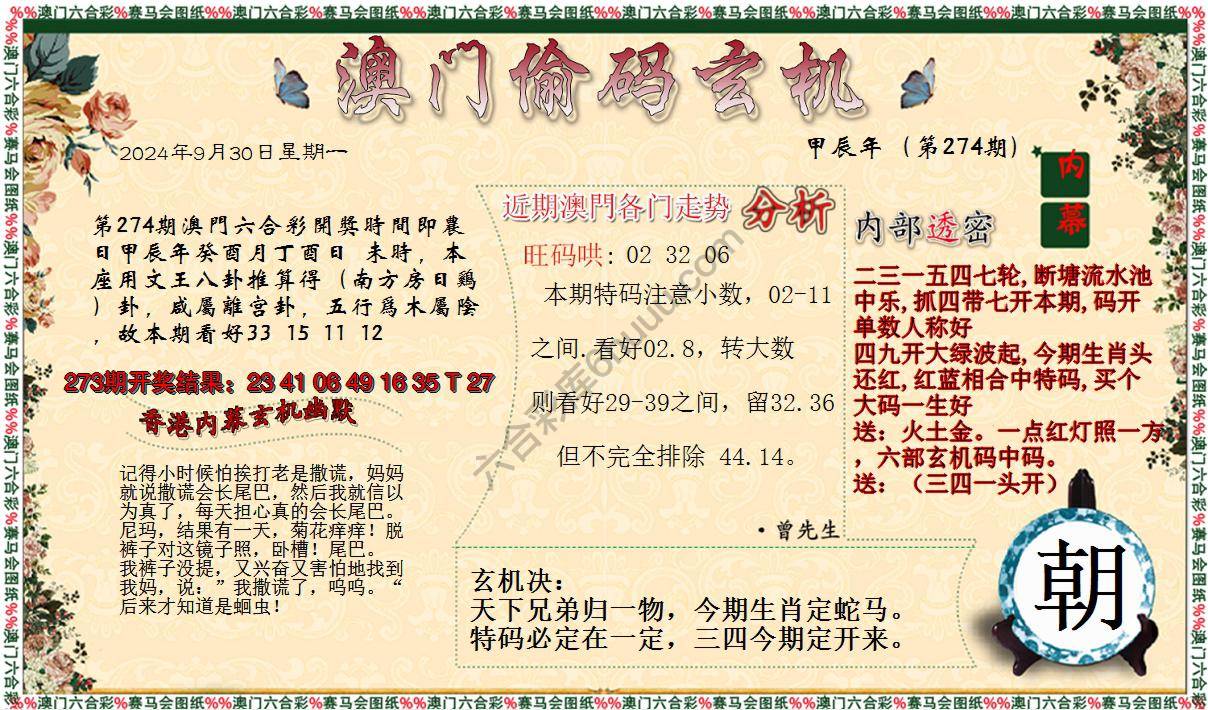 %%澳门六合彩%赛马会图纸%%澳门六合彩%赛马会图纸%%澳门六合彩%赛马会图纸%%澳门六合彩%赛马会图纸%%澳门六合彩%赛马会图纸%%澳门六合彩%赛马会图纸%%
澳门偷码玄机
2024年9月30日星期一
甲辰年（第274期）
内幕
第274期澳門六合彩開獎時間即農
日甲辰年癸酉月丁酉日 未時，本
座用文王八卦推算得（南方房日鷄
）卦，咸屬離宫卦，五行爲木屬陰
，故本期看好33 15 11 12
273期开奖结果：23 41 06 49 16 35 T 27
香港内幕玄机幽默
记得小时候怕挨打老是撒谎，妈妈
就说撒谎会长尾巴，然后我就信以
为真了，每天担心真的会长尾巴。
尼玛，结果有一天，菊花痒痒！脱
裤子对这镜子照，卧槽！尾巴。
我裤子没提，又兴奋又害怕地找到
我妈，说：”我撒谎了，呜呜。“
后来才知道是蛔虫！
近期澳門各门走势 分析
旺码哄: 02 32 06
本期特码注意小数，02-11
之间.看好02.8，转大数
则看好29-39之间，留32.36
但不完全排除 44.14。
·曾先生
内部透密
二三一五四七轮,断塘流水池
中乐,抓四带七开本期,码开
单数人称好
四九开大绿波起,今期生肖头
还红,红蓝相合中特码,买个
大码一生好
送：火土金。一点红灯照一方
，六部玄机码中码。
送：（三四一头开）
玄机决：
天下兄弟归一物，今期生肖定蛇马。
特码必定在一定，三四今期定开来。
朝